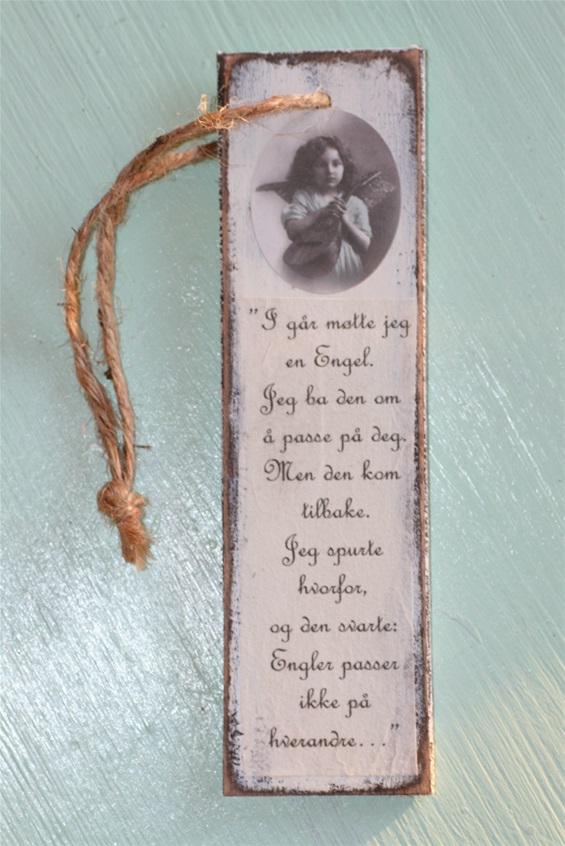 "I går møtte jeg
en Engel.
Jeg ba den om
å passe på deg.
Men den kom
tilbake.
Jeg spurte
hvorfor,
og den svarte:
Engler passer
ikke på
hverandre..."